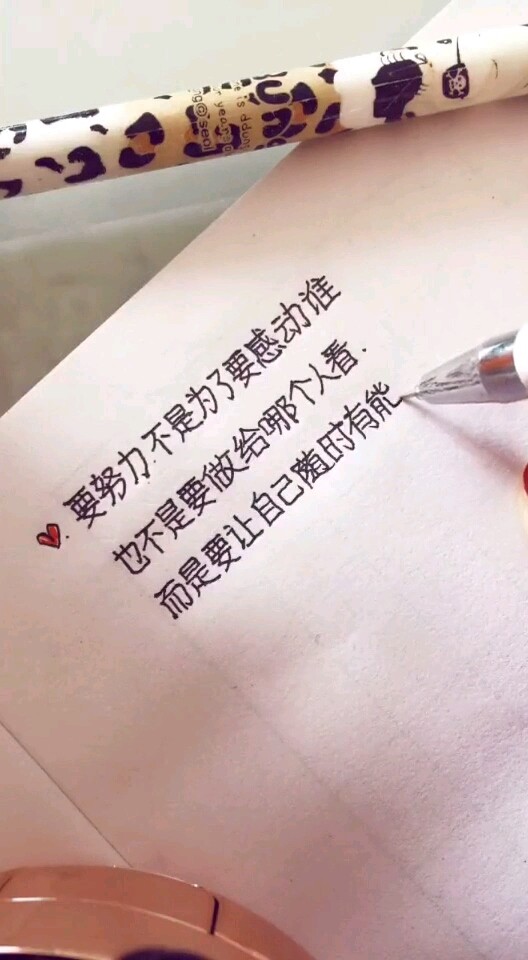 要努力.不是为了要感动谁
也不是要做给哪个人看.
而是要让自己随时有能